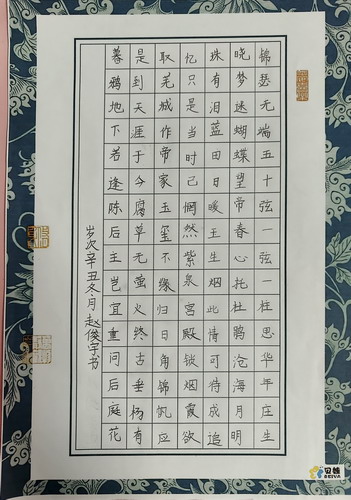 锦瑟无端五十弦一弦一柱思华年庄生
晓梦迷蝴蝶望帝春心托杜鹃沧海月明
珠有泪蓝田日暖玉生烟此情可待成追
忆只是当时已惘然紫泉宫殿锁烟霞欲
取芜城作帝家玉玺不缘归日角锦帆应
是到天涯于今腐草无萤火终古垂杨有
暮鸦地下若逢陈后主岂宜重问后庭花
岁次辛丑冬月赵俊宇书